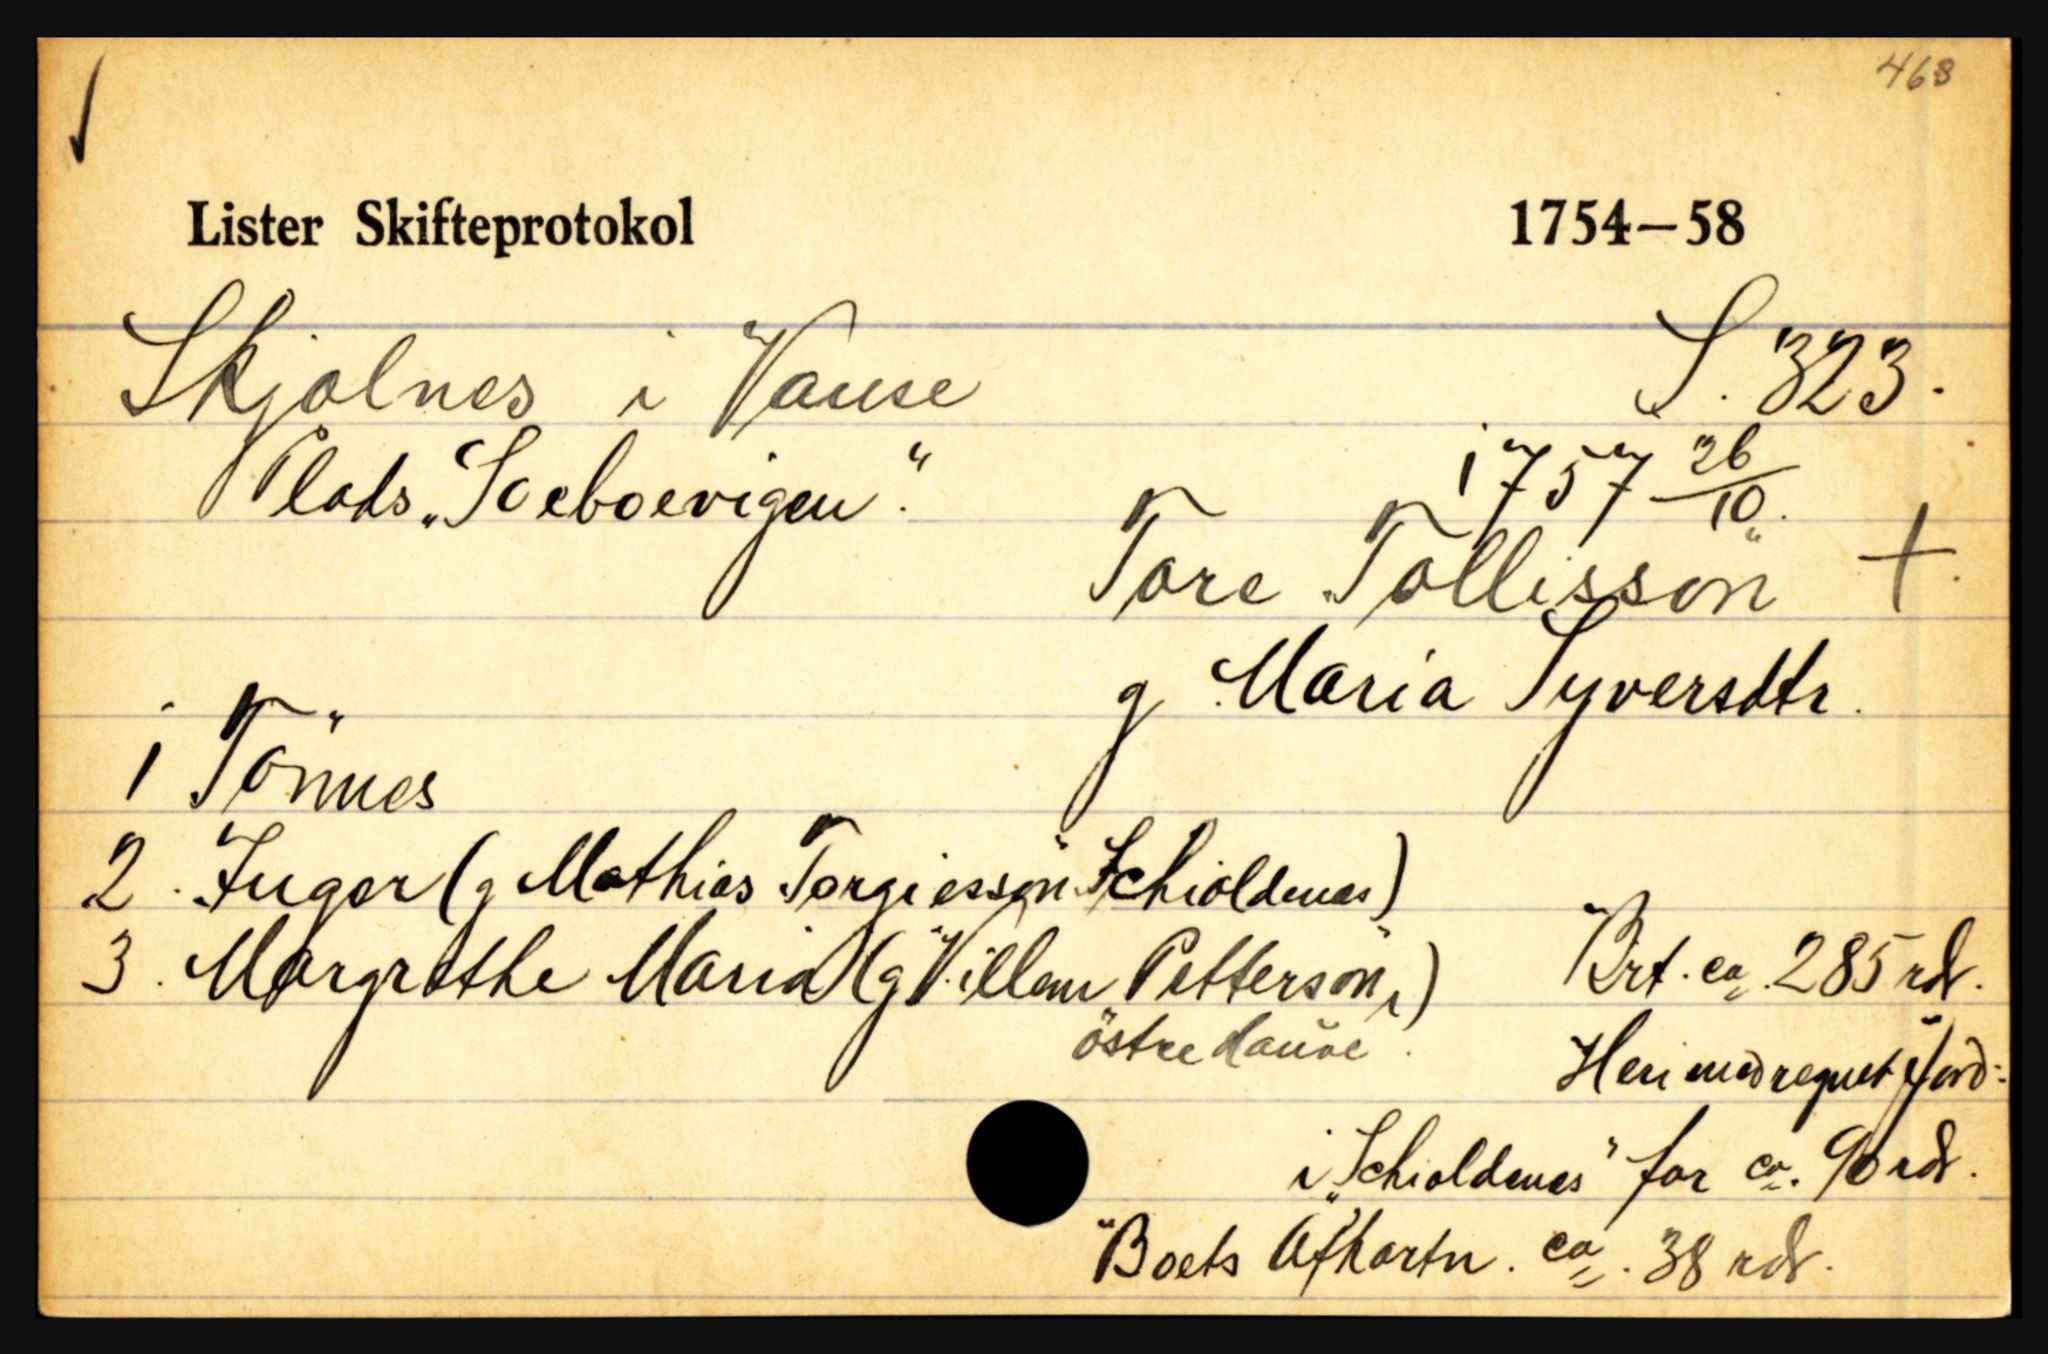 468
Lister Skifteprotokol 1754–58
Skjolnes i Vanse S. 323.
Plads „Soeboevigen“. 1757 26/10.
Tore Tollissön +.
g Maria Syversdtr.
1 Tönnes
2. Inger (g Mathias Torgiessön Schioldenes)
3. Margrethe Maria (g Villem Pettersön,) Brt. ca. 285 rdr.
östre Hauve. Heri medregnet Jord:
i „Schioldenes“ for ca. 90 rdr.
Boets Afkortn. ca. 38 rdr.